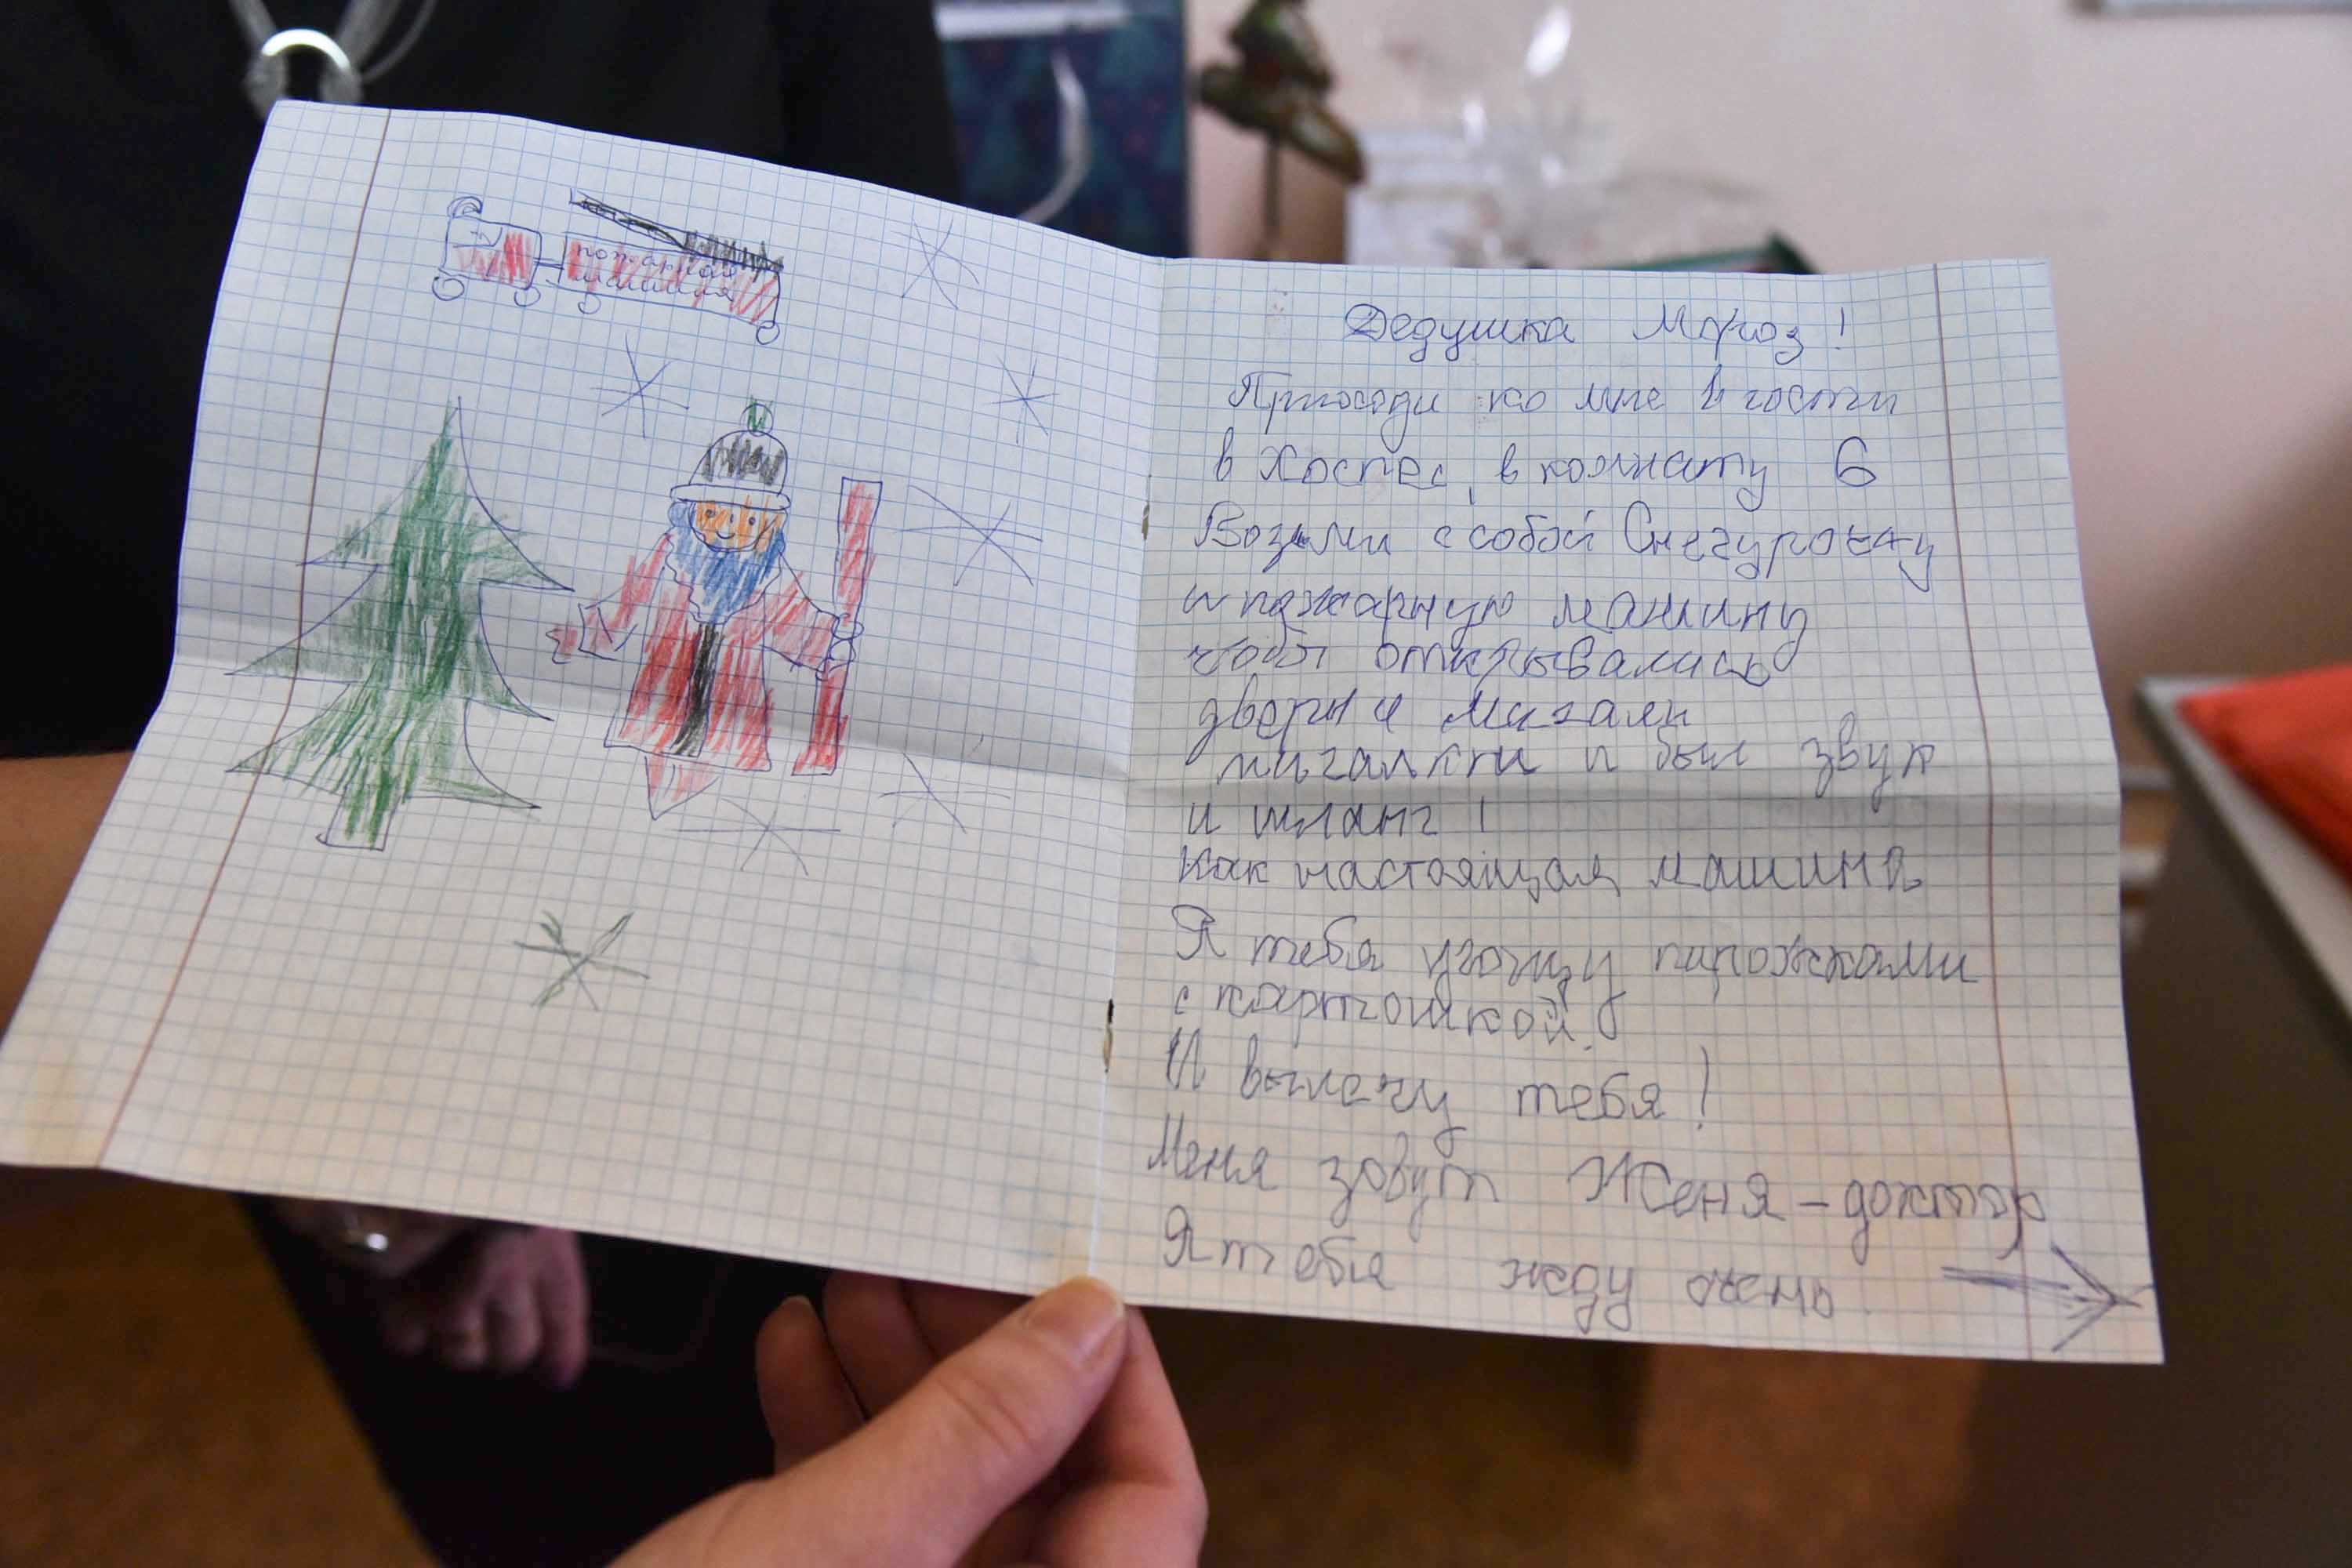 пожарная
машина
Дедушка Мороз!
Приходи ко мне в гости
в Хоспес, в комнату 6
Возьми с собой Снегурочку
и пожарную машину
чтобы открывались
двери и мигали
мигалки и был звук
и шланг!
Как настоящая машина
Я тебя угощу пирожками
с картошкой.
И вылечу тебя!
Меня зовут Женя - доктор
Я тебя жду очень